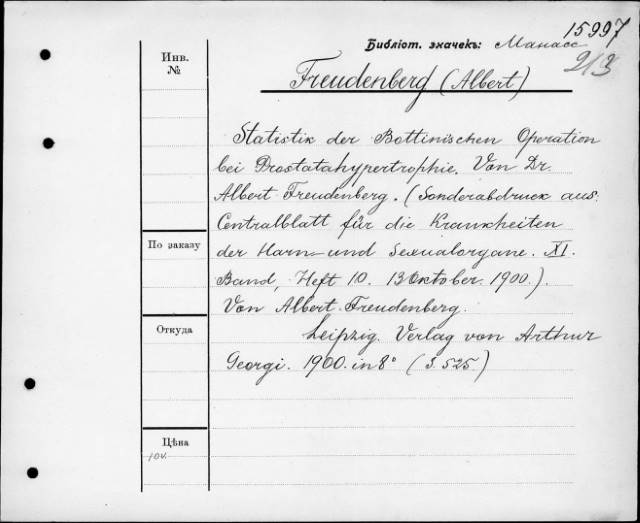 15997
Библіот. значекъ: Манасс
2/3
Инв.
№
Freudenberg (Albert)
Statistik der Bottinischen Operation
bei Prostatahypertrophie. Von Dr.
Albert Freudenberg. (Sonderabdruck aus:
Centralblatt für die Krankheiten
По заказу
der Harn- und Sexualorgane. XI.
Band, Heft 10. 13 Oktober. 1900.).
Von Albert Freudenberg.
Откуда
Leipzig. Verlag von Arthur
Georgi. 1900. in 8° (S. 525.)
Цѣна
10v.